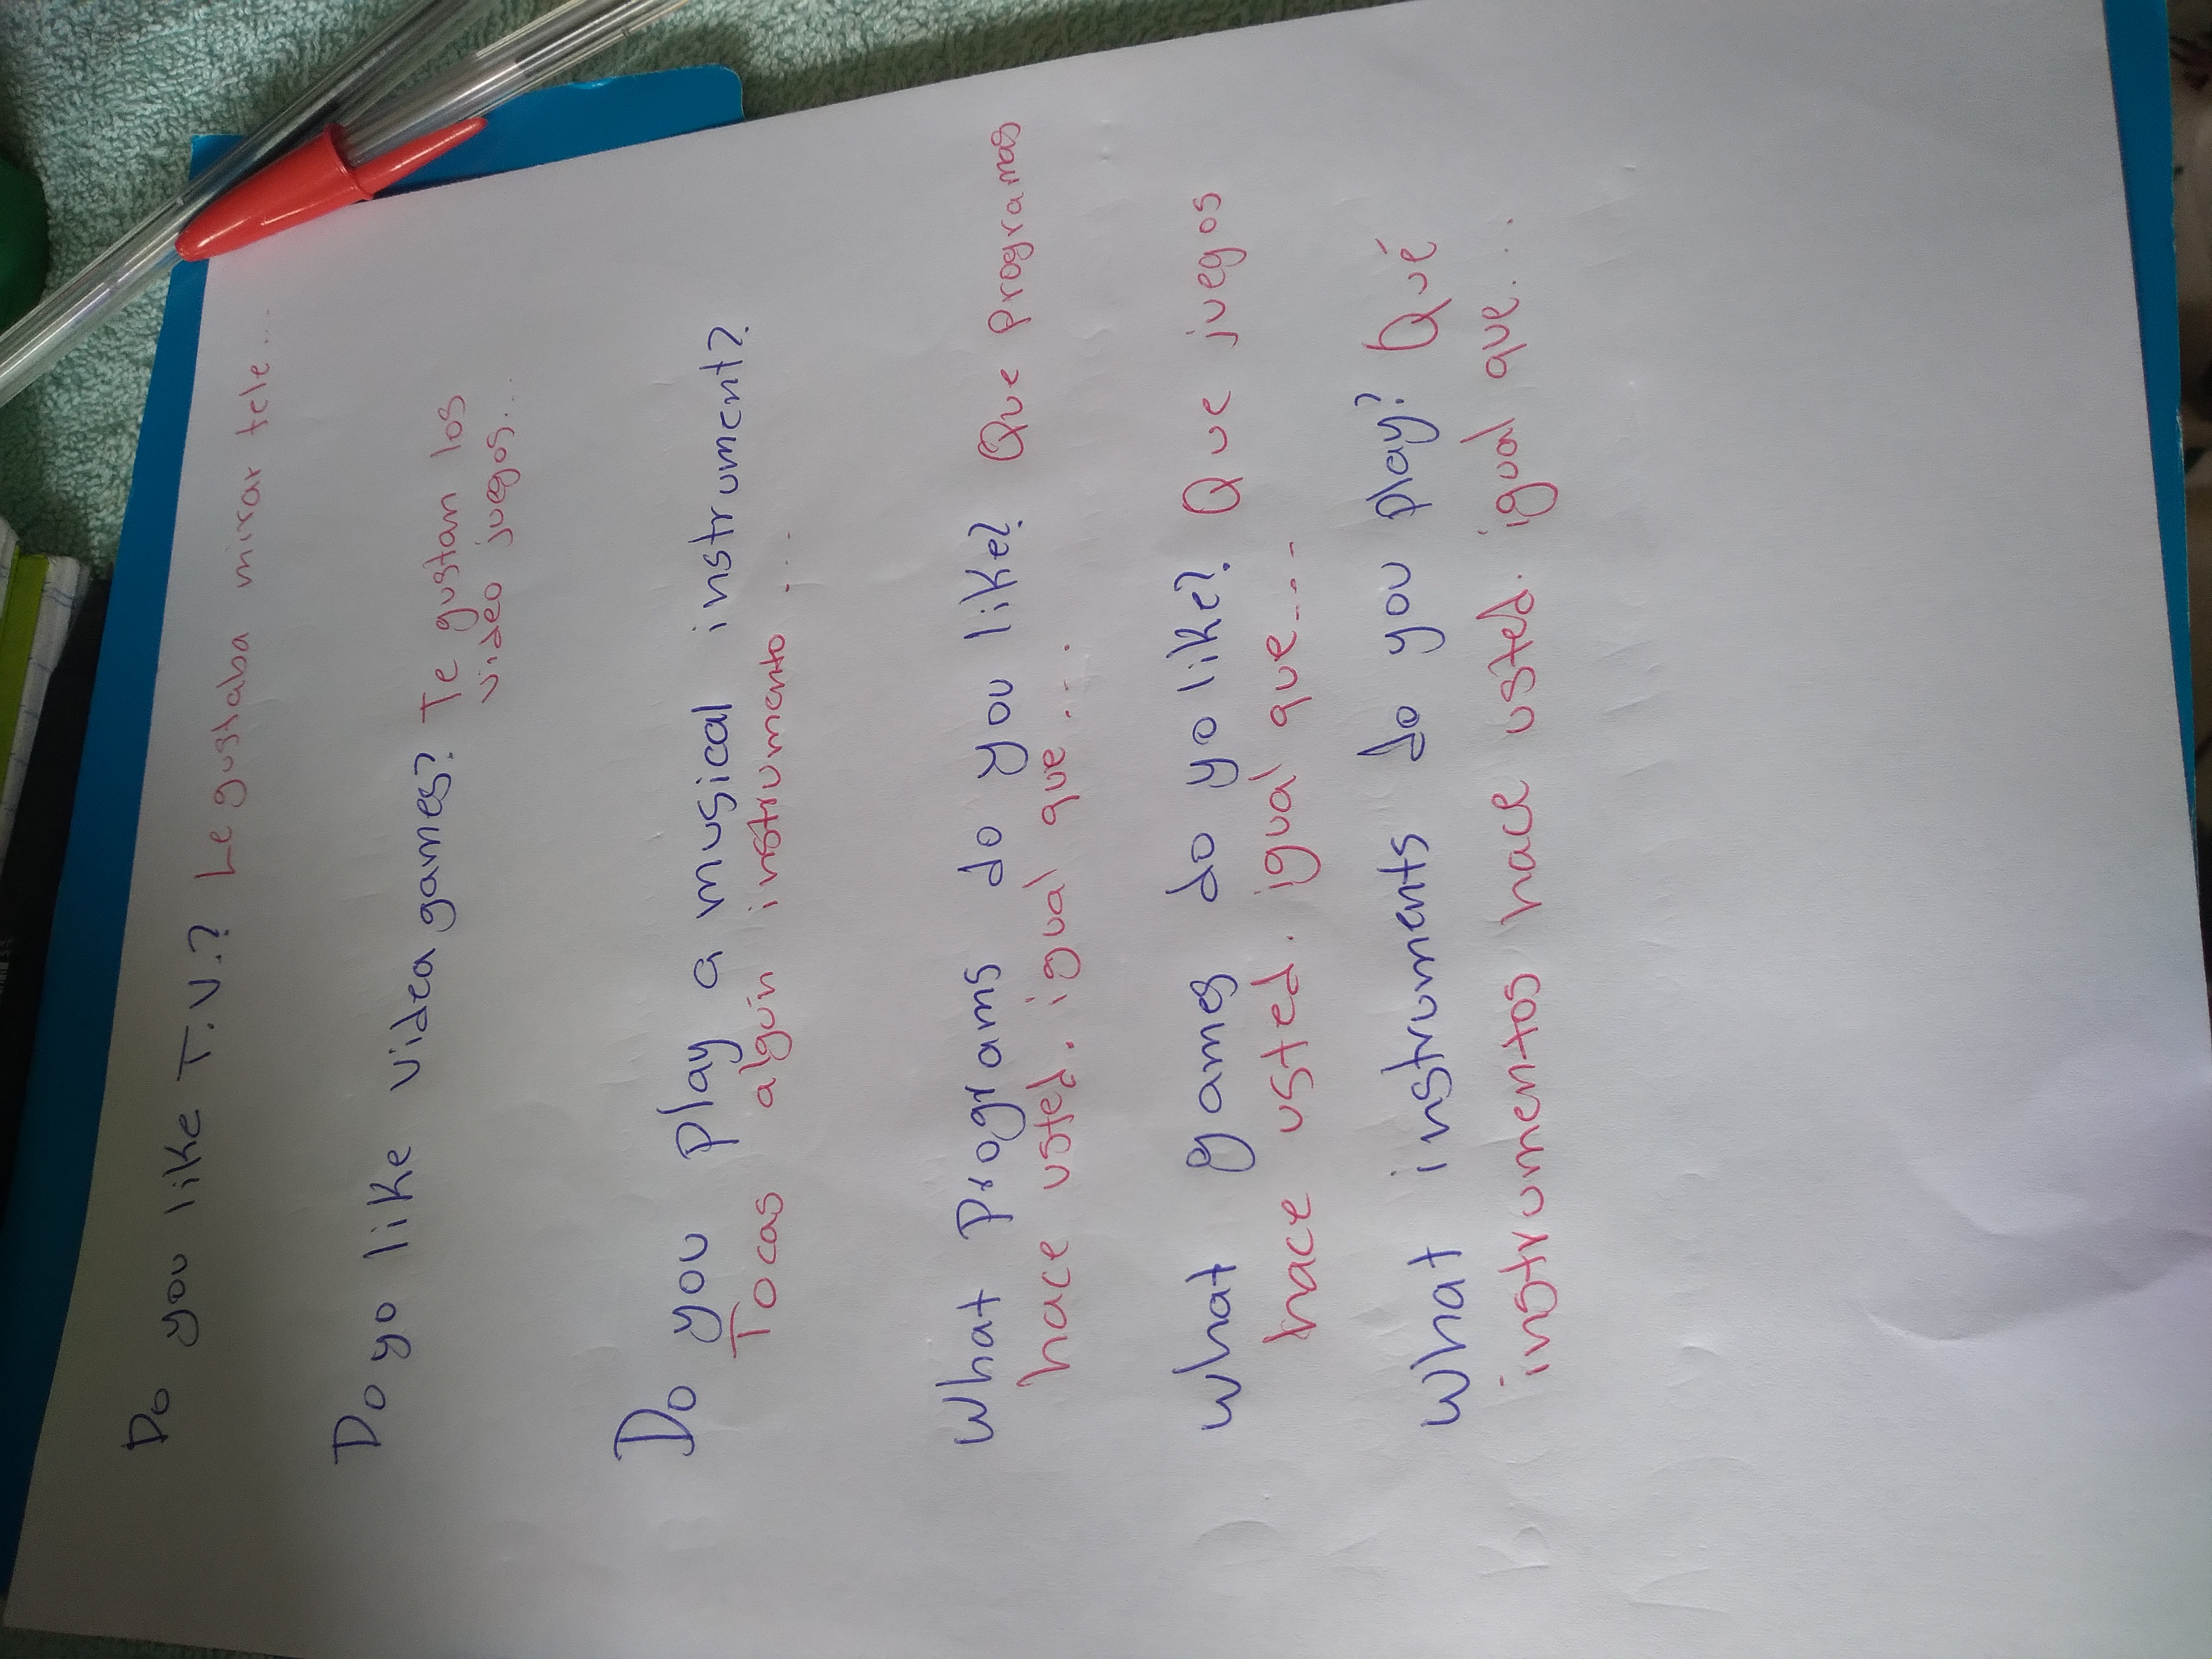 Do you like T.V.? Le gustaba mirar tele....
Do yo like videa games? Te gustan los
video juegos...
Do you play a musical instrument?
Tocas alguin instrumento ...
What programs do you like? Que programas
hace usted. igual que....
What games do yo like? Que juegos
hace usted. igual que....
What instruments do you play? Qué
instrumentos hace usted. igual que...